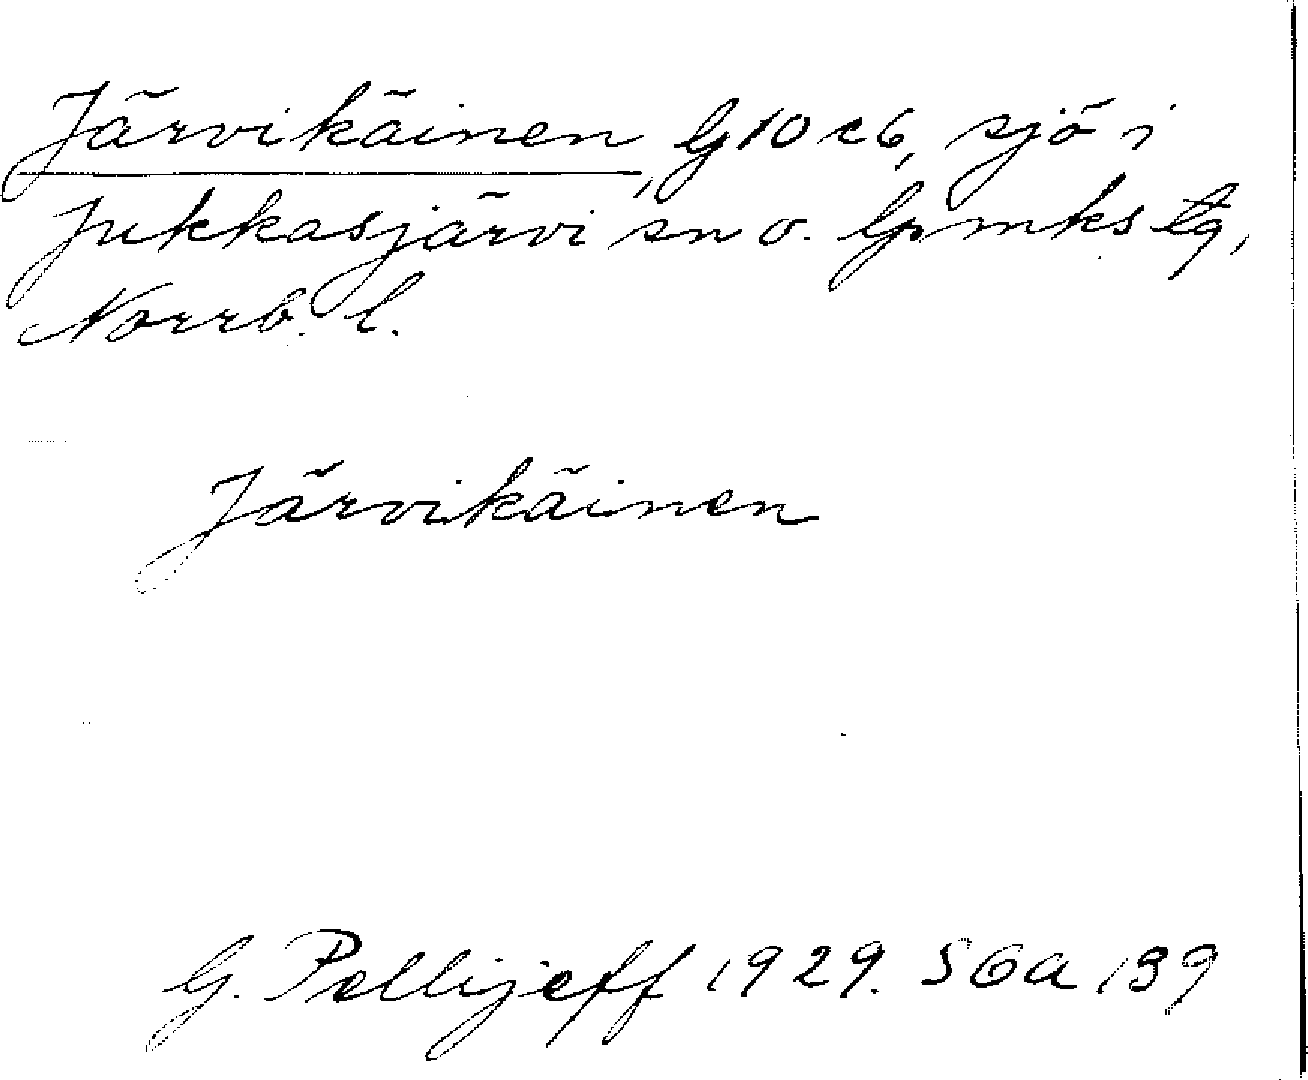 Järvikäinen, G10 c6, sjö i
Jukkasjärvi sn o. lpmks tg,
Norrb. l.
Järvikäinen
G. Pellijeff 1929. 56a 139